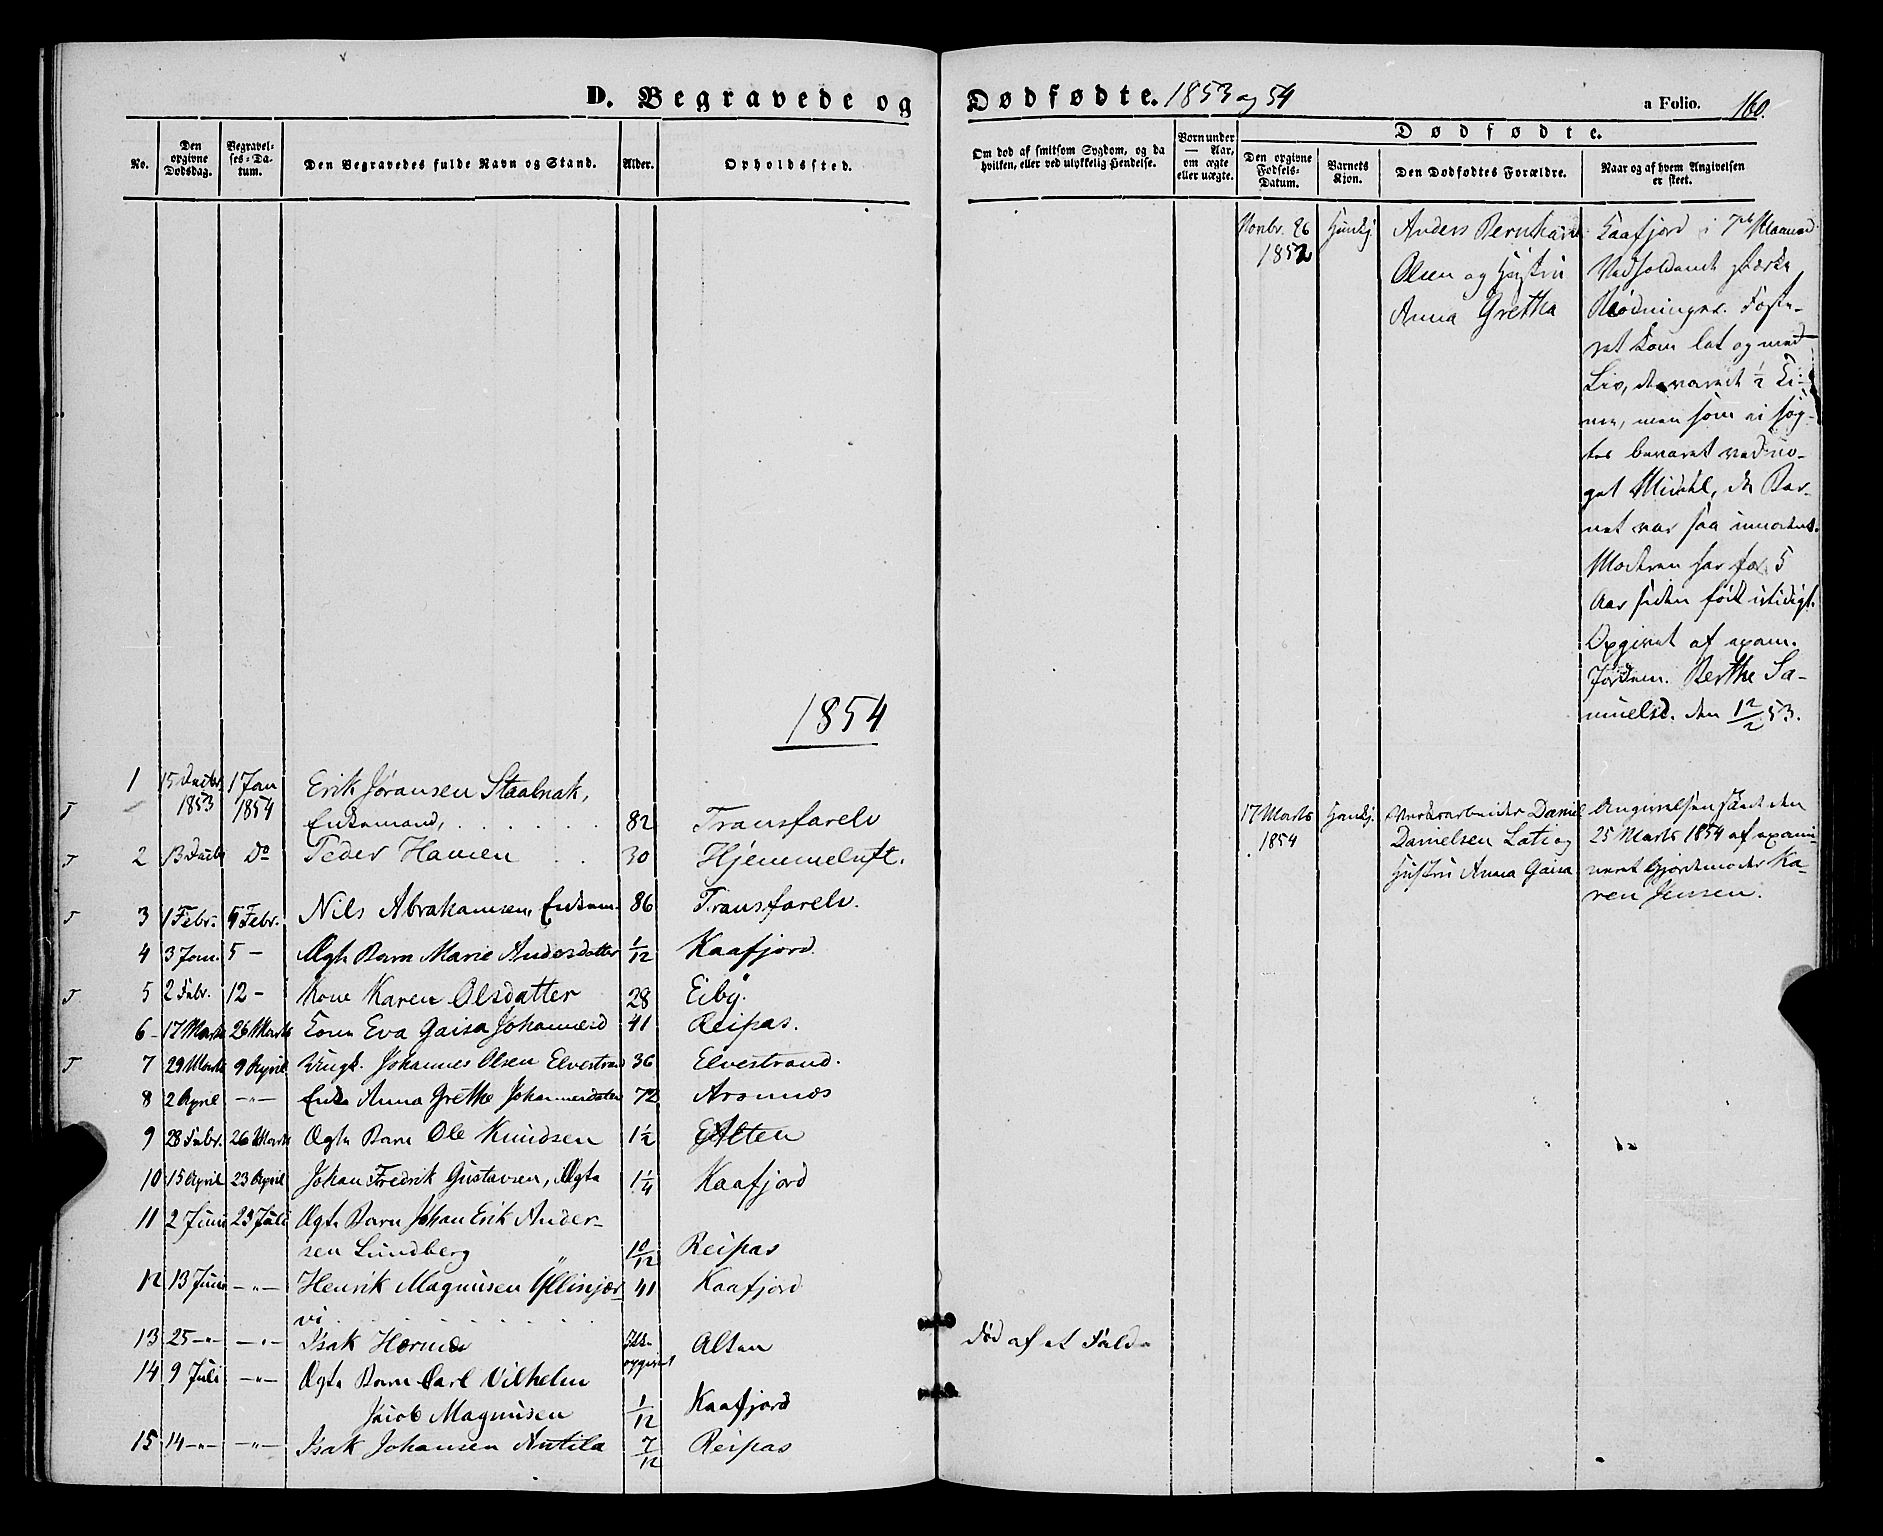 D. Begravede og Dødfødte. 1853 og 54
a Folio. 160.
No.
Den opgivne Dødsdag.
Begravelses-Datum.
Den Begravedes fulde Navn og Stand.
Alder.
Opholdssted.
Om død af smitsom Sygdom, og da hvilken, eller ved ulykkelig Hendelse.
Børn under — Aar, om ægte eller uægte.
Dødfødte.
Den opgivne Fødsels-Datum.
Barnets Kjøn.
Den Dødfødtes Forældre.
Naar og af hvem Angivelsen er skeet.
Novbr. 26
1852
Anders Bernhard
Olsen og Hustru
Anna Gretha
Kaafjord i 7de Maaned
Vedholdende stærke
Blødninger. Foste-
ret kom let og med
Liv, der varede ½ Ti-
me, men som ei søg-
tes bevaret ved no-
get Middel, da Bar-
net var saa
Moderen har for 5
Aar siden født utidigt.
Opgivet af exam.
Jordem. Berthe Sa-
muelsd. den 12/2 53.
1854
1 15 Decbr 1853 1 Jan 1854 Erik Jøransen Staalnak,
T Enkemand, . . . . . . 82 Transfarelv
T 2 13 Decbr Do Peder Hansen . . 30 Hjemmeluft.
T 3 1 Febr. 5 Febr. Nils Abrahamsen, Enkem. 86 Transfarelv.
4 3 Jan. 5 — Ægte Barn Marie Andersdatter 1/12 Kaafjord.
T 5 2 Febr. 12 — Kone Karen Olsdatter 28 Eiby.
6 17 Marts 26 Marts Kone Eva Gaisa Johannesd 41 Reipas.
T 7 29 Marts 9 April Ungk. Johannes Olsen Elvestrand 36 Elvestrand.
8 2 April —"— Enke Anna Grethe Johannesdatter 72 Aronnæs
9 28 Febr. 26 Marts Ægte Barn Ole Knudsen 1½ Alten
10 15 April 23 April Johan Fredrik Gustavsen, Ægte 1¼ Kaafjord
11 2 Juni 23 Juli Ægte Barn Johan Erik Ander-
sen Lundberg 10/12 Reipas
12 13 Juni —"— Henrik Magnusen Yllinjær- 41 Kaafjord
vi . . . . . . . . .
13 25 —"— —"— Isak Alten Død af et Fald
14 9 Juli —"— Ægte Barn Carl Vilhelm
Jacob Magnusen 1/12 Kaafjord
15 14 —"— —"— Isak Johansen Antila 7/12 Reipas
17 Marts
1854
Verksarbeider Daniel
Danielsen Lato og
Hustru Anna Gaisa
Angivelsen skede den
25 Marts 1854 af exami-
neret Gjordemoder Ka-
ren Jensen.